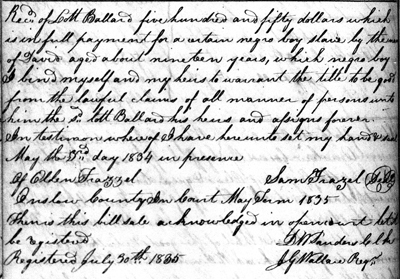 Recd of Lott Ballard five hundred and fifty dollars which
is in full payment for a certain negro boy slave by the name
of David aged about nineteen years, which negro boy
I bind myself and my heirs to warrant the title to be good
from the lawful claims of all manner of persons unto
him the sd Lott Ballard his heirs and assigns forever
In testimony whereof I have hereunto set my hand & seal
May the day 1834 in presence
Of Ellen Frazzel Saml Frazel
Onslow County In Court May Term 1835
Then is this bill sale acknowledged in open court let it
be registered D W Sanders Clk
Registered July 30th 1835 J G Wallace Regr